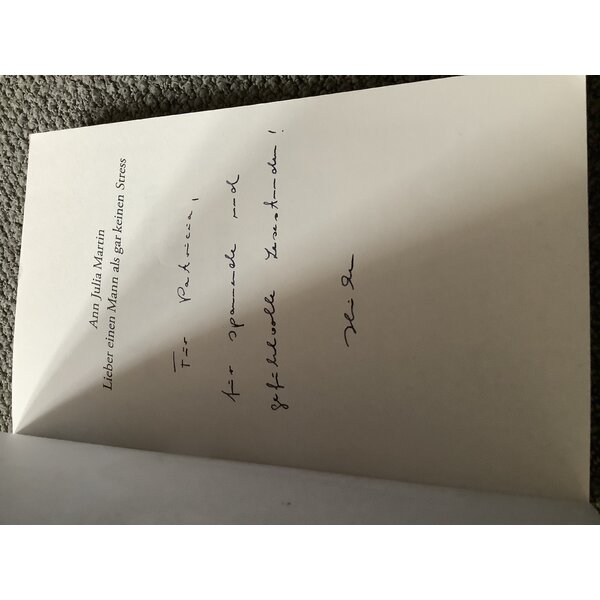 Ann Julia Martin
Lieber einen Mann als gar keinen Stress
Für Patricia,
für spannende und
gefühlvolle Lesestunden!